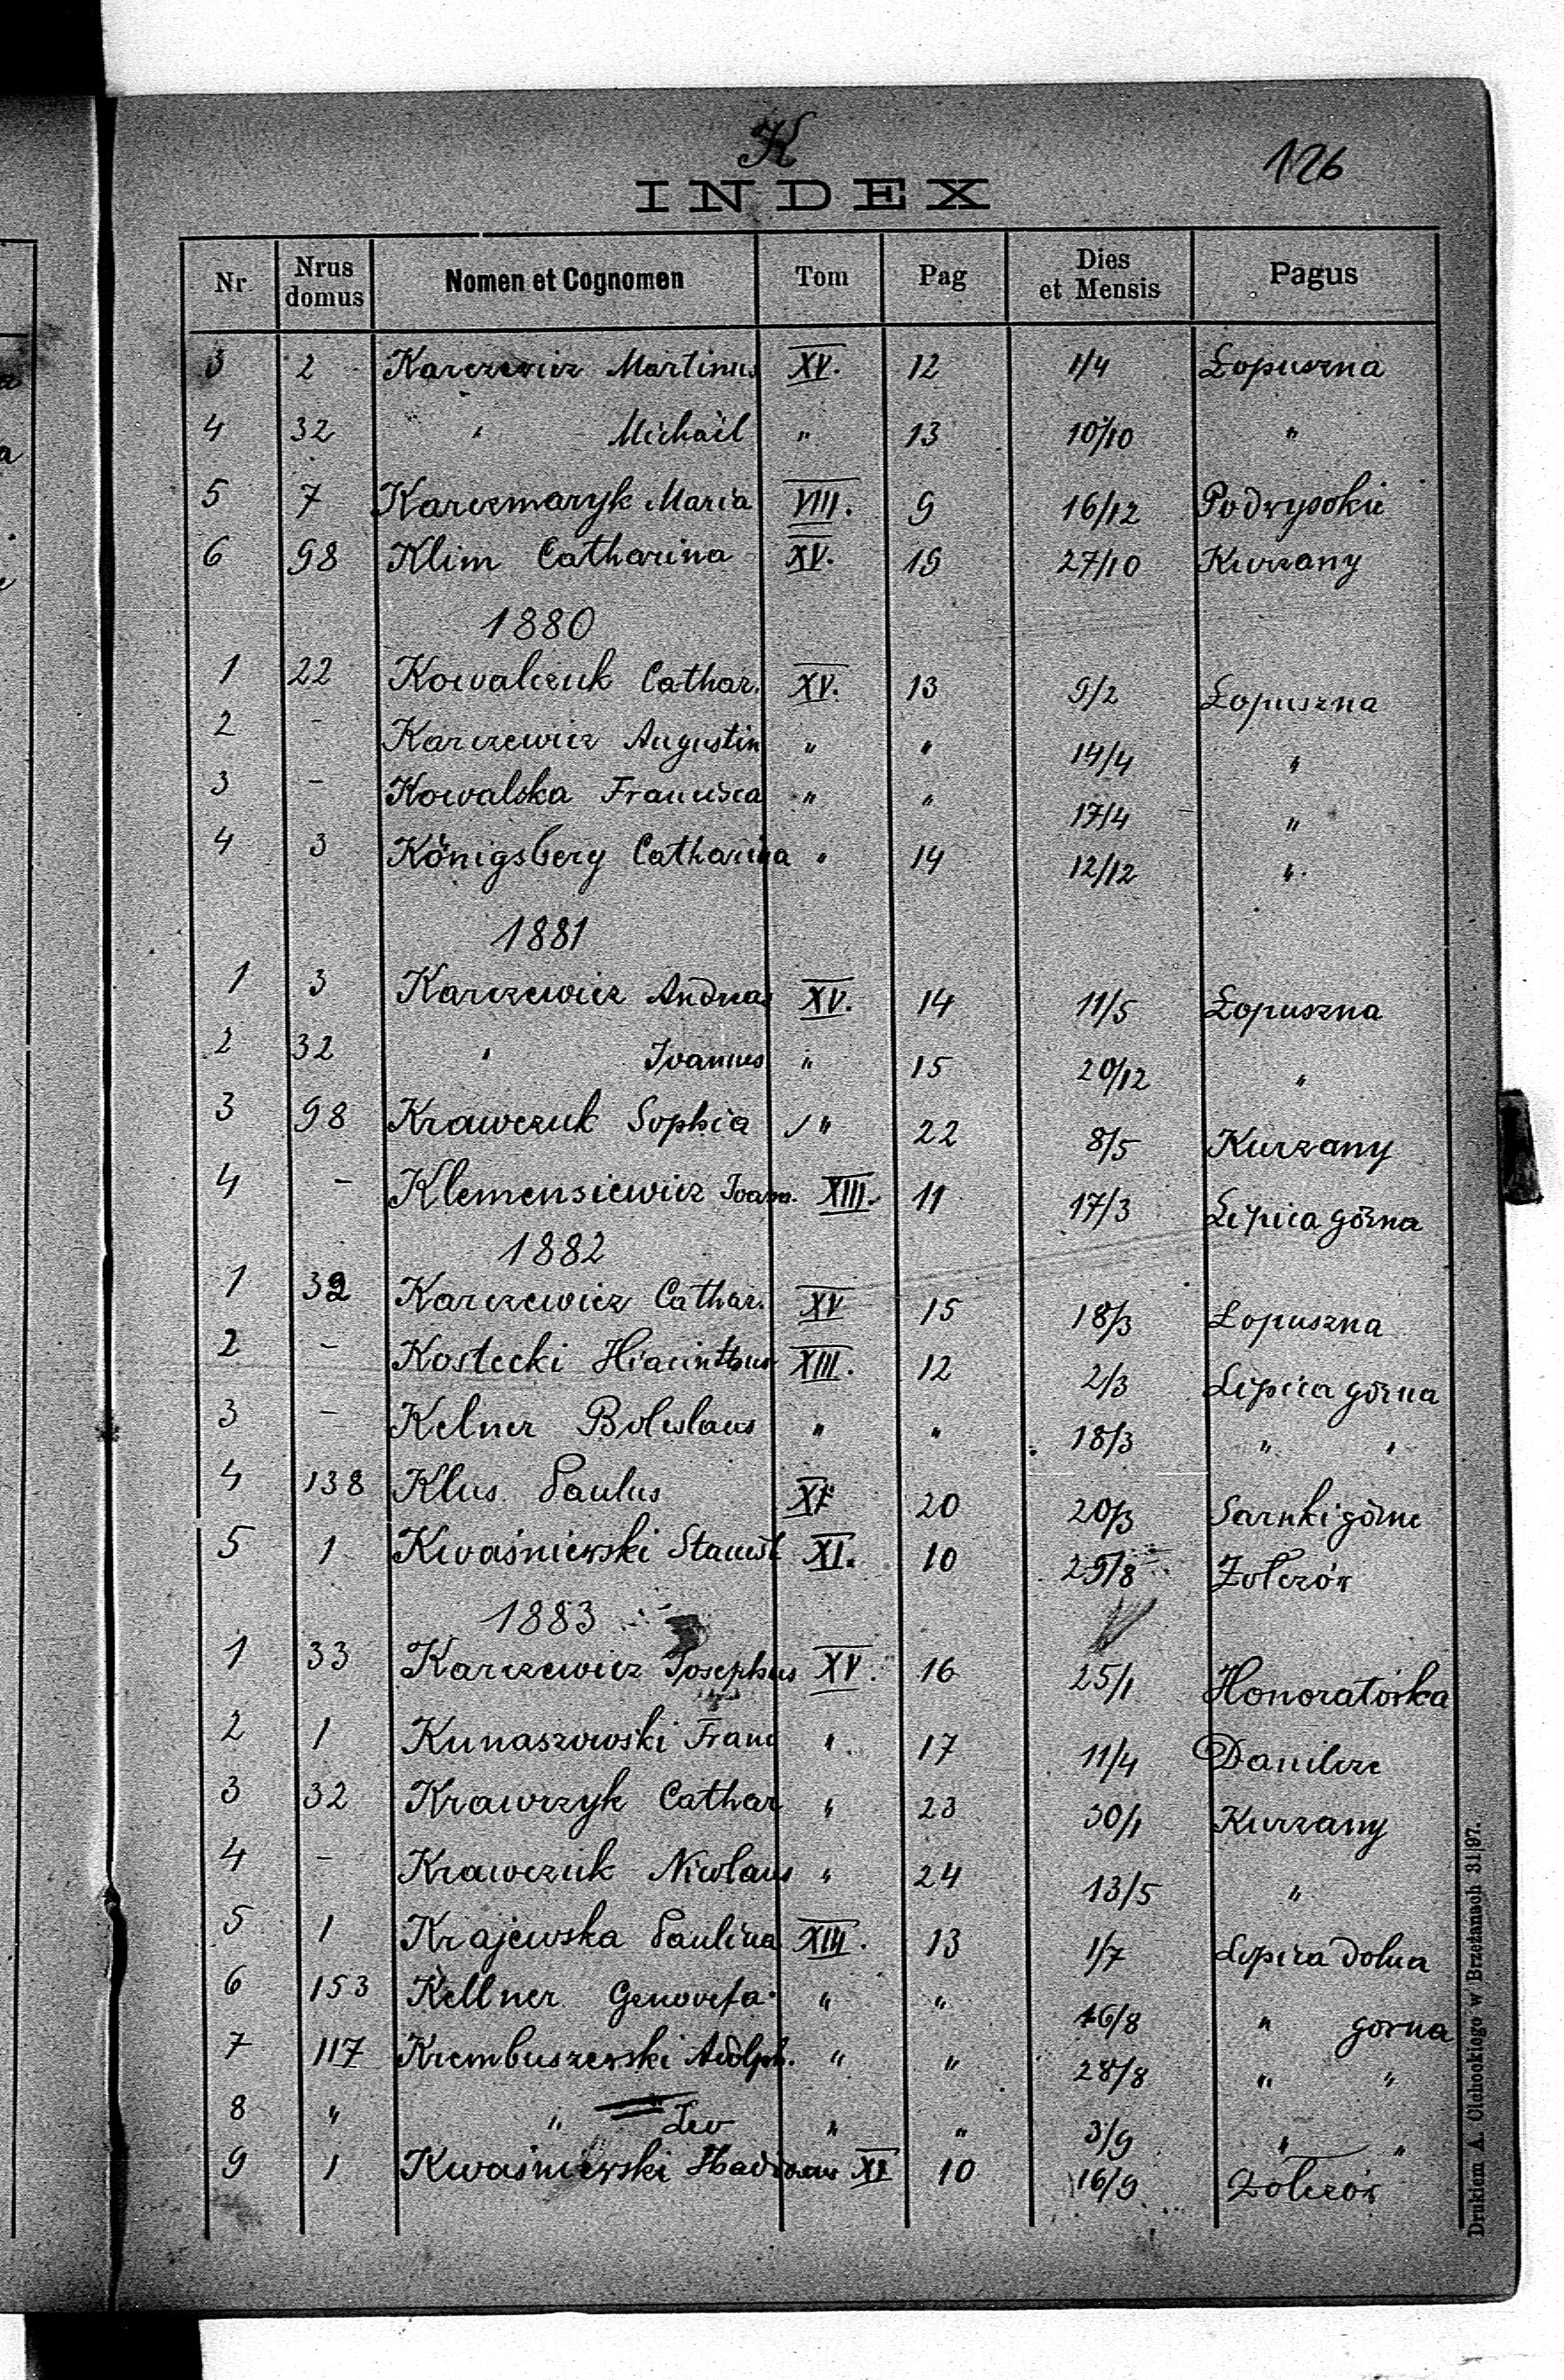 K
126
INDEX
Nr Nrus domus Nomen et Cognomen Tom Pag Dies et Mensis Pagus
3 2 Karczewicz Martinus XV. 12 1/4 Łopuszna
4 32 " Michaël " 13 10/10 "
5 7 Karczmaryk Maria VIII. 9 16/12 Podwysokie
6 98 Klim Catharina XV. 19 27/10 Kurzany
1880
1 22 Kowalczuk Cathar. XV. 13 9/2 Łopuszna
2 - Karczewicz Augustin " " 14/4 "
3 - Kowalska Francisca " " 17/4 "
4 3 Königsberg Catharina " 14 12/12 "
1881
1 3 Karczewicz Andreas XV. 14 11/5 Łopuszna
2 32 " Ioannes " 15 20/12 "
3 98 Krawczuk Sophia " 22 8/5 Kurzany
4 - Klemensiewicz Ioann. XIII. 11 17/3 Lipica górna
1882
1 32 Karczewicz Cathar. XV 15 18/3 Łopuszna
2 - Kostecki Hiacinthus XIII. 12 2/3 Lipica górna
3 - Kelner Boleslaus " " 18/3 " "
4 138 Klus Paulus 20 20/3 Sarnki górne
5 1 Kwaśniewski Stanisł XI. 10 29/8 Żołczów
1883
1 33 Karczewicz Josephus XV. 16 25/1 Honoratówka
2 1 Kunaszowski Franc " 17 11/4 Danilcze
3 32 Krawczyk Cathar " 23 30/1 Kurzany
4 - Krawczuk Nicolaus " 24 13/5 "
5 1 Krajewska Paulina XIII. 13 1/7 Lipica dolna
6 153 Kellner Genovefa " " 16/8 " górna
7 117 Krembuszewski Adolph. " " 28/8 " "
8 " " Leo " " 3/9 " "
9 1 Kwaśniewski XI 10 16/9 Żołczów
Drukiem A. Olchockiego w Brzeżanach 31|97.